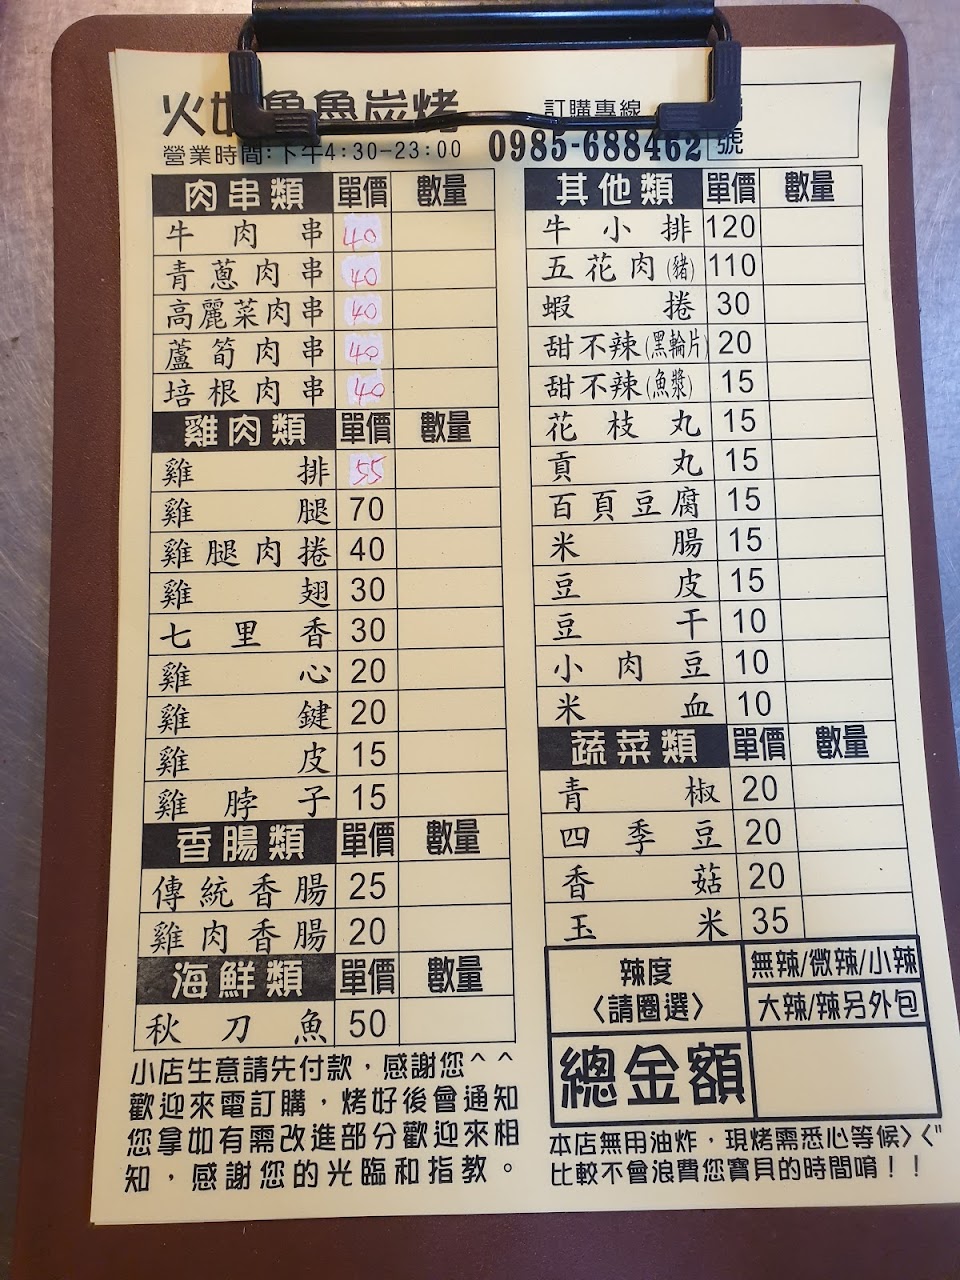 魚炭烤
訂購專線
營業時間:下午4:30-23:00
0985-688462
號
肉串類 單價 數量
牛肉串 40
青蔥肉串 40
高麗菜肉串 40
蘆筍肉串 40
培根肉串 40
雞肉類 單價 數量
雞排 55
雞腿 70
雞腿肉捲 40
雞翅 30
七里香 30
雞心 20
雞鍵 20
雞皮 15
雞脖子 15
香腸類 單價 數量
傳統香腸 25
雞肉香腸 20
海鮮類 單價 數量
秋刀魚 50
小店生意請先付款，感謝您^^
歡迎來電訂購，烤好後會通知
您拿如有需改進部分歡迎來相
知，感謝您的光臨和指教。
其他類 單價 數量
牛小排 120
五花肉(豬) 110
蝦捲 30
甜不辣(黑輪片) 20
甜不辣(魚漿) 15
花枝丸 15
貢丸 15
百頁豆腐 15
米腸 15
豆皮 15
豆干 10
小肉豆 10
米血 10
蔬菜類 單價 數量
青椒 20
四季豆 20
香菇 20
玉米 35
辣度
〈請圈選〉
無辣/微辣/小辣
大辣/辣另外包
總金額
本店無用油炸，現烤需悉心等候>く"
比較不會浪費您寶貝的時間唷！！